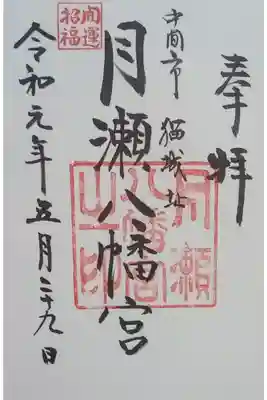 奉拝
中間市 猫城址
月瀬八幡宮
令和元年五月二十九日
開運
招福
月瀬
八幡宮
之印